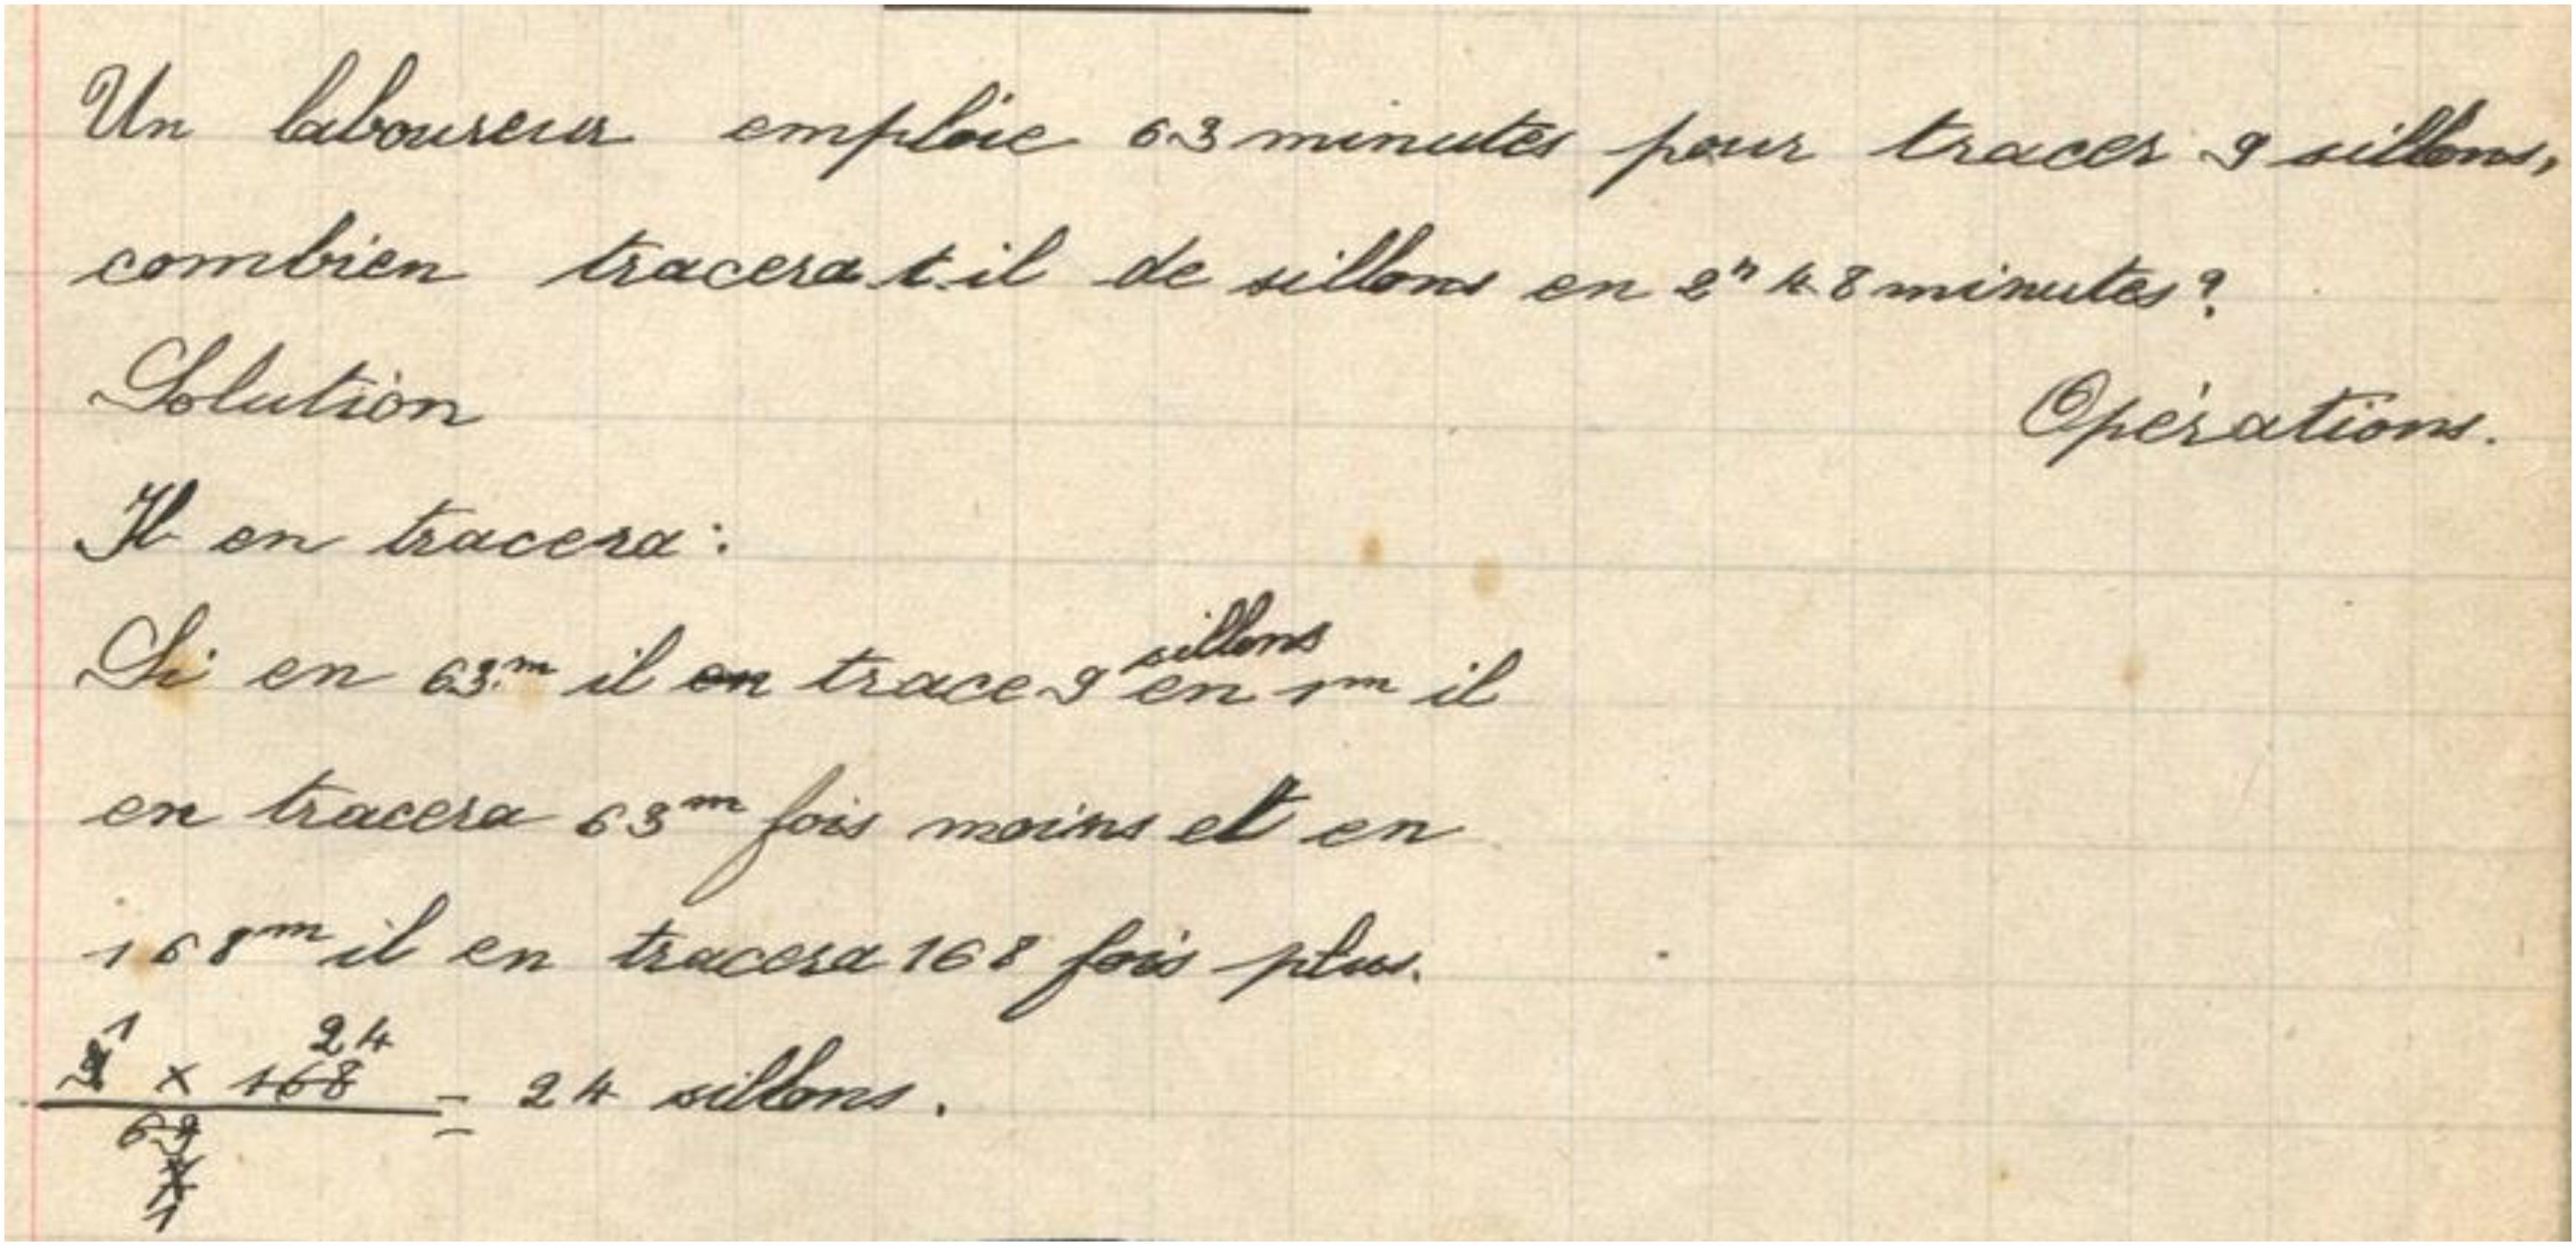 Un laboureur emploie 63 minutes pour tracer 9 sillons,
combien tracera t-il de sillons en 2h 48 minutes?
Solution
Opérations.
Il en tracera:
Si en 63m il en trace 9 sillons en 1m il
en tracera 63m fois moins et en
168m il en tracera 168 fois plus.
1 24
9 x 168 = 24 sillons.
63
7
1